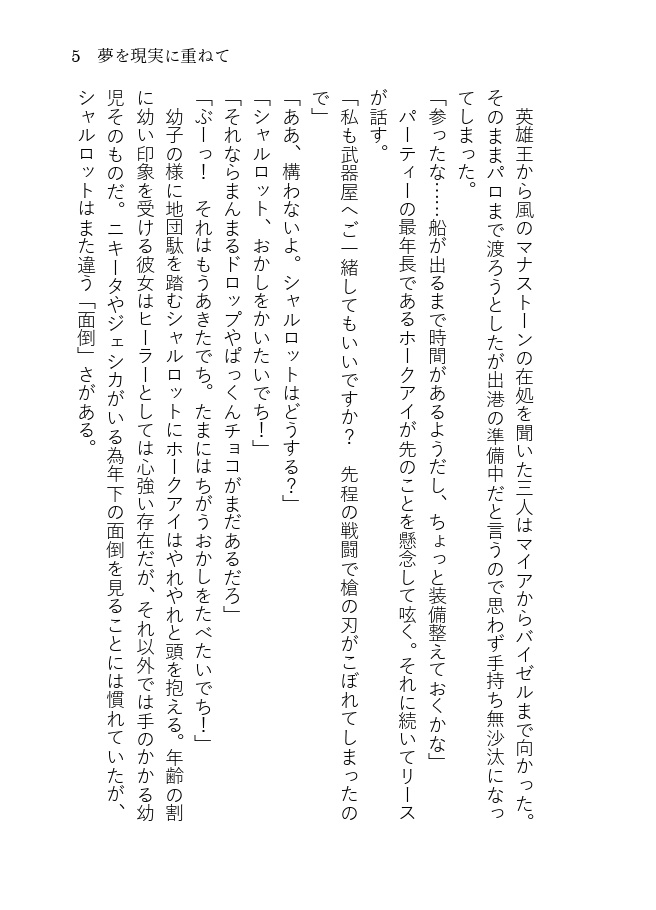 5　夢を現実に重ねて
　英雄王から風のマナストーンの在処を聞いた三人はマイアからバイゼルまで向かった。
そのままパロまで渡ろうとしたが出港の準備中だと言うので思わず手持ち無沙汰になっ
てしまった。
「参ったな……船が出るまで時間があるようだし、ちょっと装備整えておくかな」
　パーティーの最年長であるホークアイが先のことを懸念して呟く。それに続いてリース
が話す。
「私も武器屋へご一緒してもいいですか？　先程の戦闘で槍の刃がこぼれてしまったの
で」
「ああ、構わないよ。シャルロットはどうする？」
「シャルロット、おかしをかいたいでち！」
「それならまんまるドロップやぱっくんチョコがまだあるだろ」
「ぶーっ！　それはもうあきたでち。たまにはちがうおかしをたべたいでち！」
　幼子の様に地団駄を踏むシャルロットにホークアイはやれやれと頭を抱える。年齢の割
に幼い印象を受ける彼女はヒーラーとしては心強い存在だが、それ以外では手のかかる幼
児そのものだ。ニキータやジェシカがいる為年下の面倒を見ることには慣れていたが、
シャルロットはまた違う「面倒」さがある。